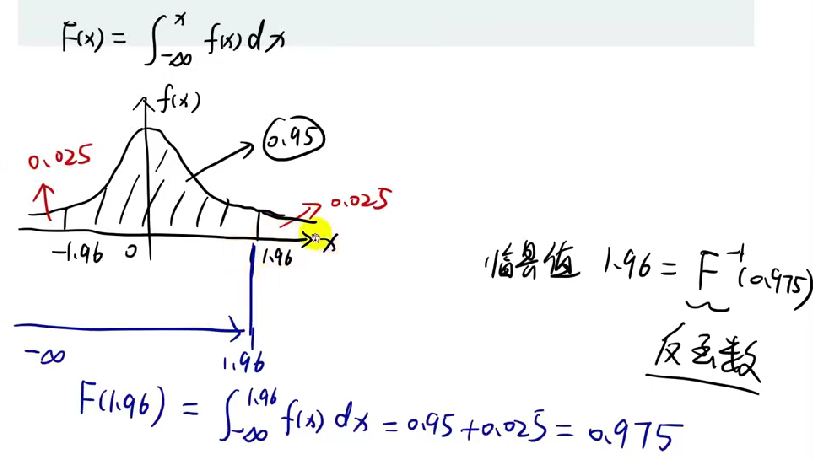 F(x) = ∫_{-∞}^{x} f(x) dx
f(x)
0.95
0.025
0.025
-1.96 0 1.96 x
临界值 1.96 = F⁻¹(0.975)
反函数
-∞ 1.96
F(1.96) = ∫_{-∞}^{1.96} f(x) dx = 0.95 + 0.025 = 0.975